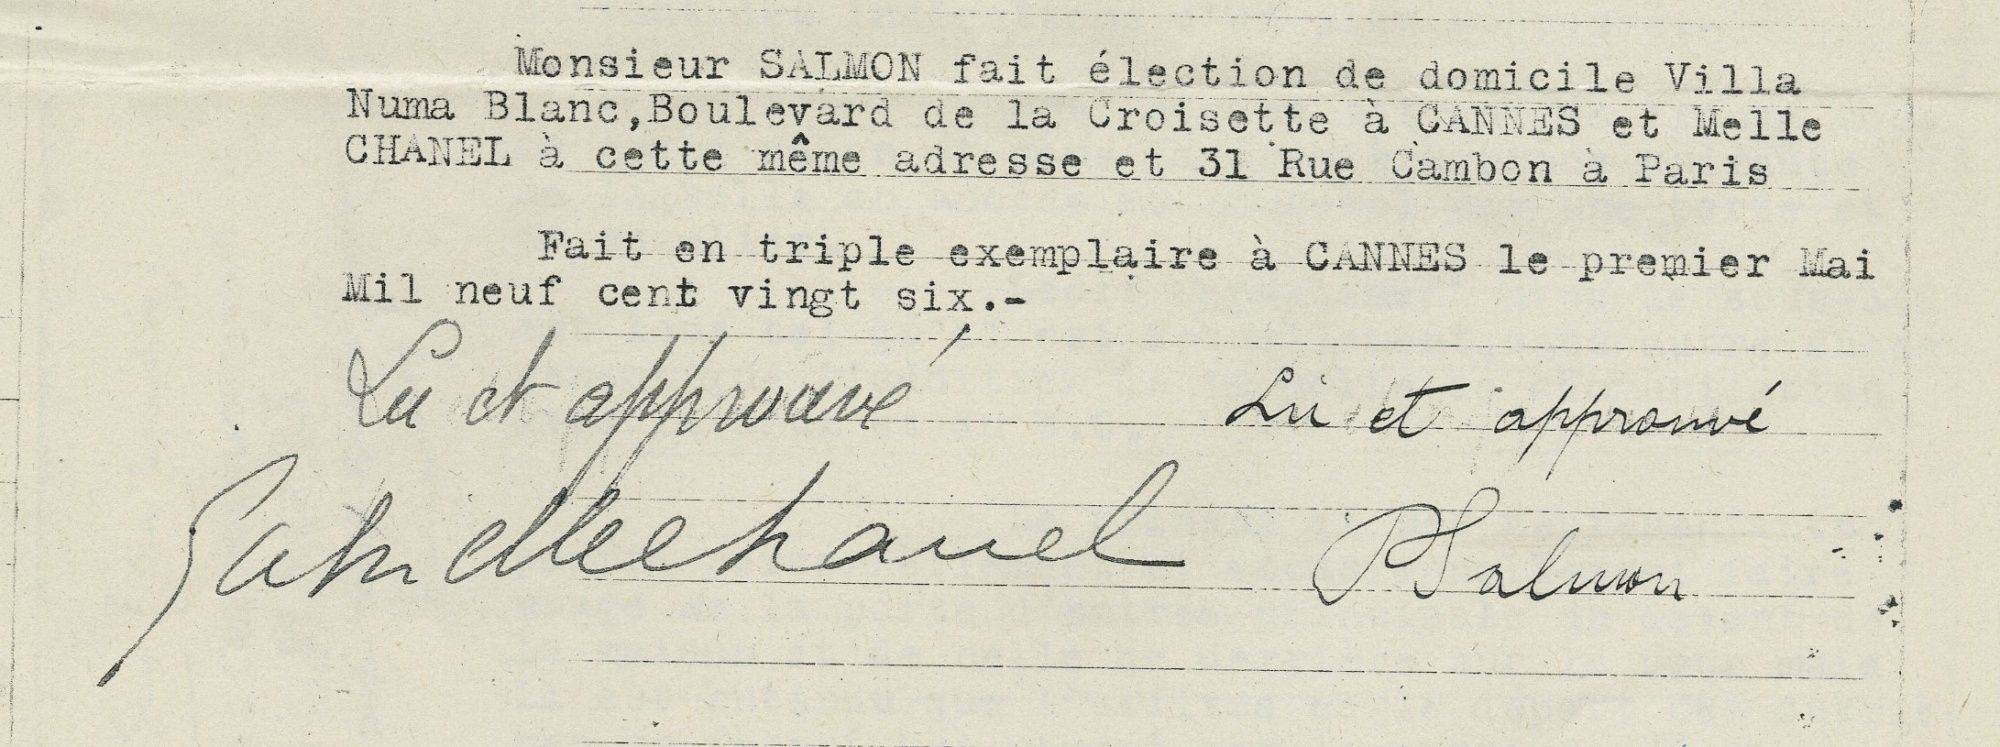 Monsieur SALMON fait élection de domicile Villa
Numa Blanc,Boulevard de la Croisette à CANNES et Melle
CHANEL à cette même adresse et 31 Rue Cambon à Paris
Fait en triple exemplaire à CANNES le premier Mai
Mil neuf cent vingt six.-
Lu et approuvé Lu et approuvé
Gabrielle Chanel PSalmon